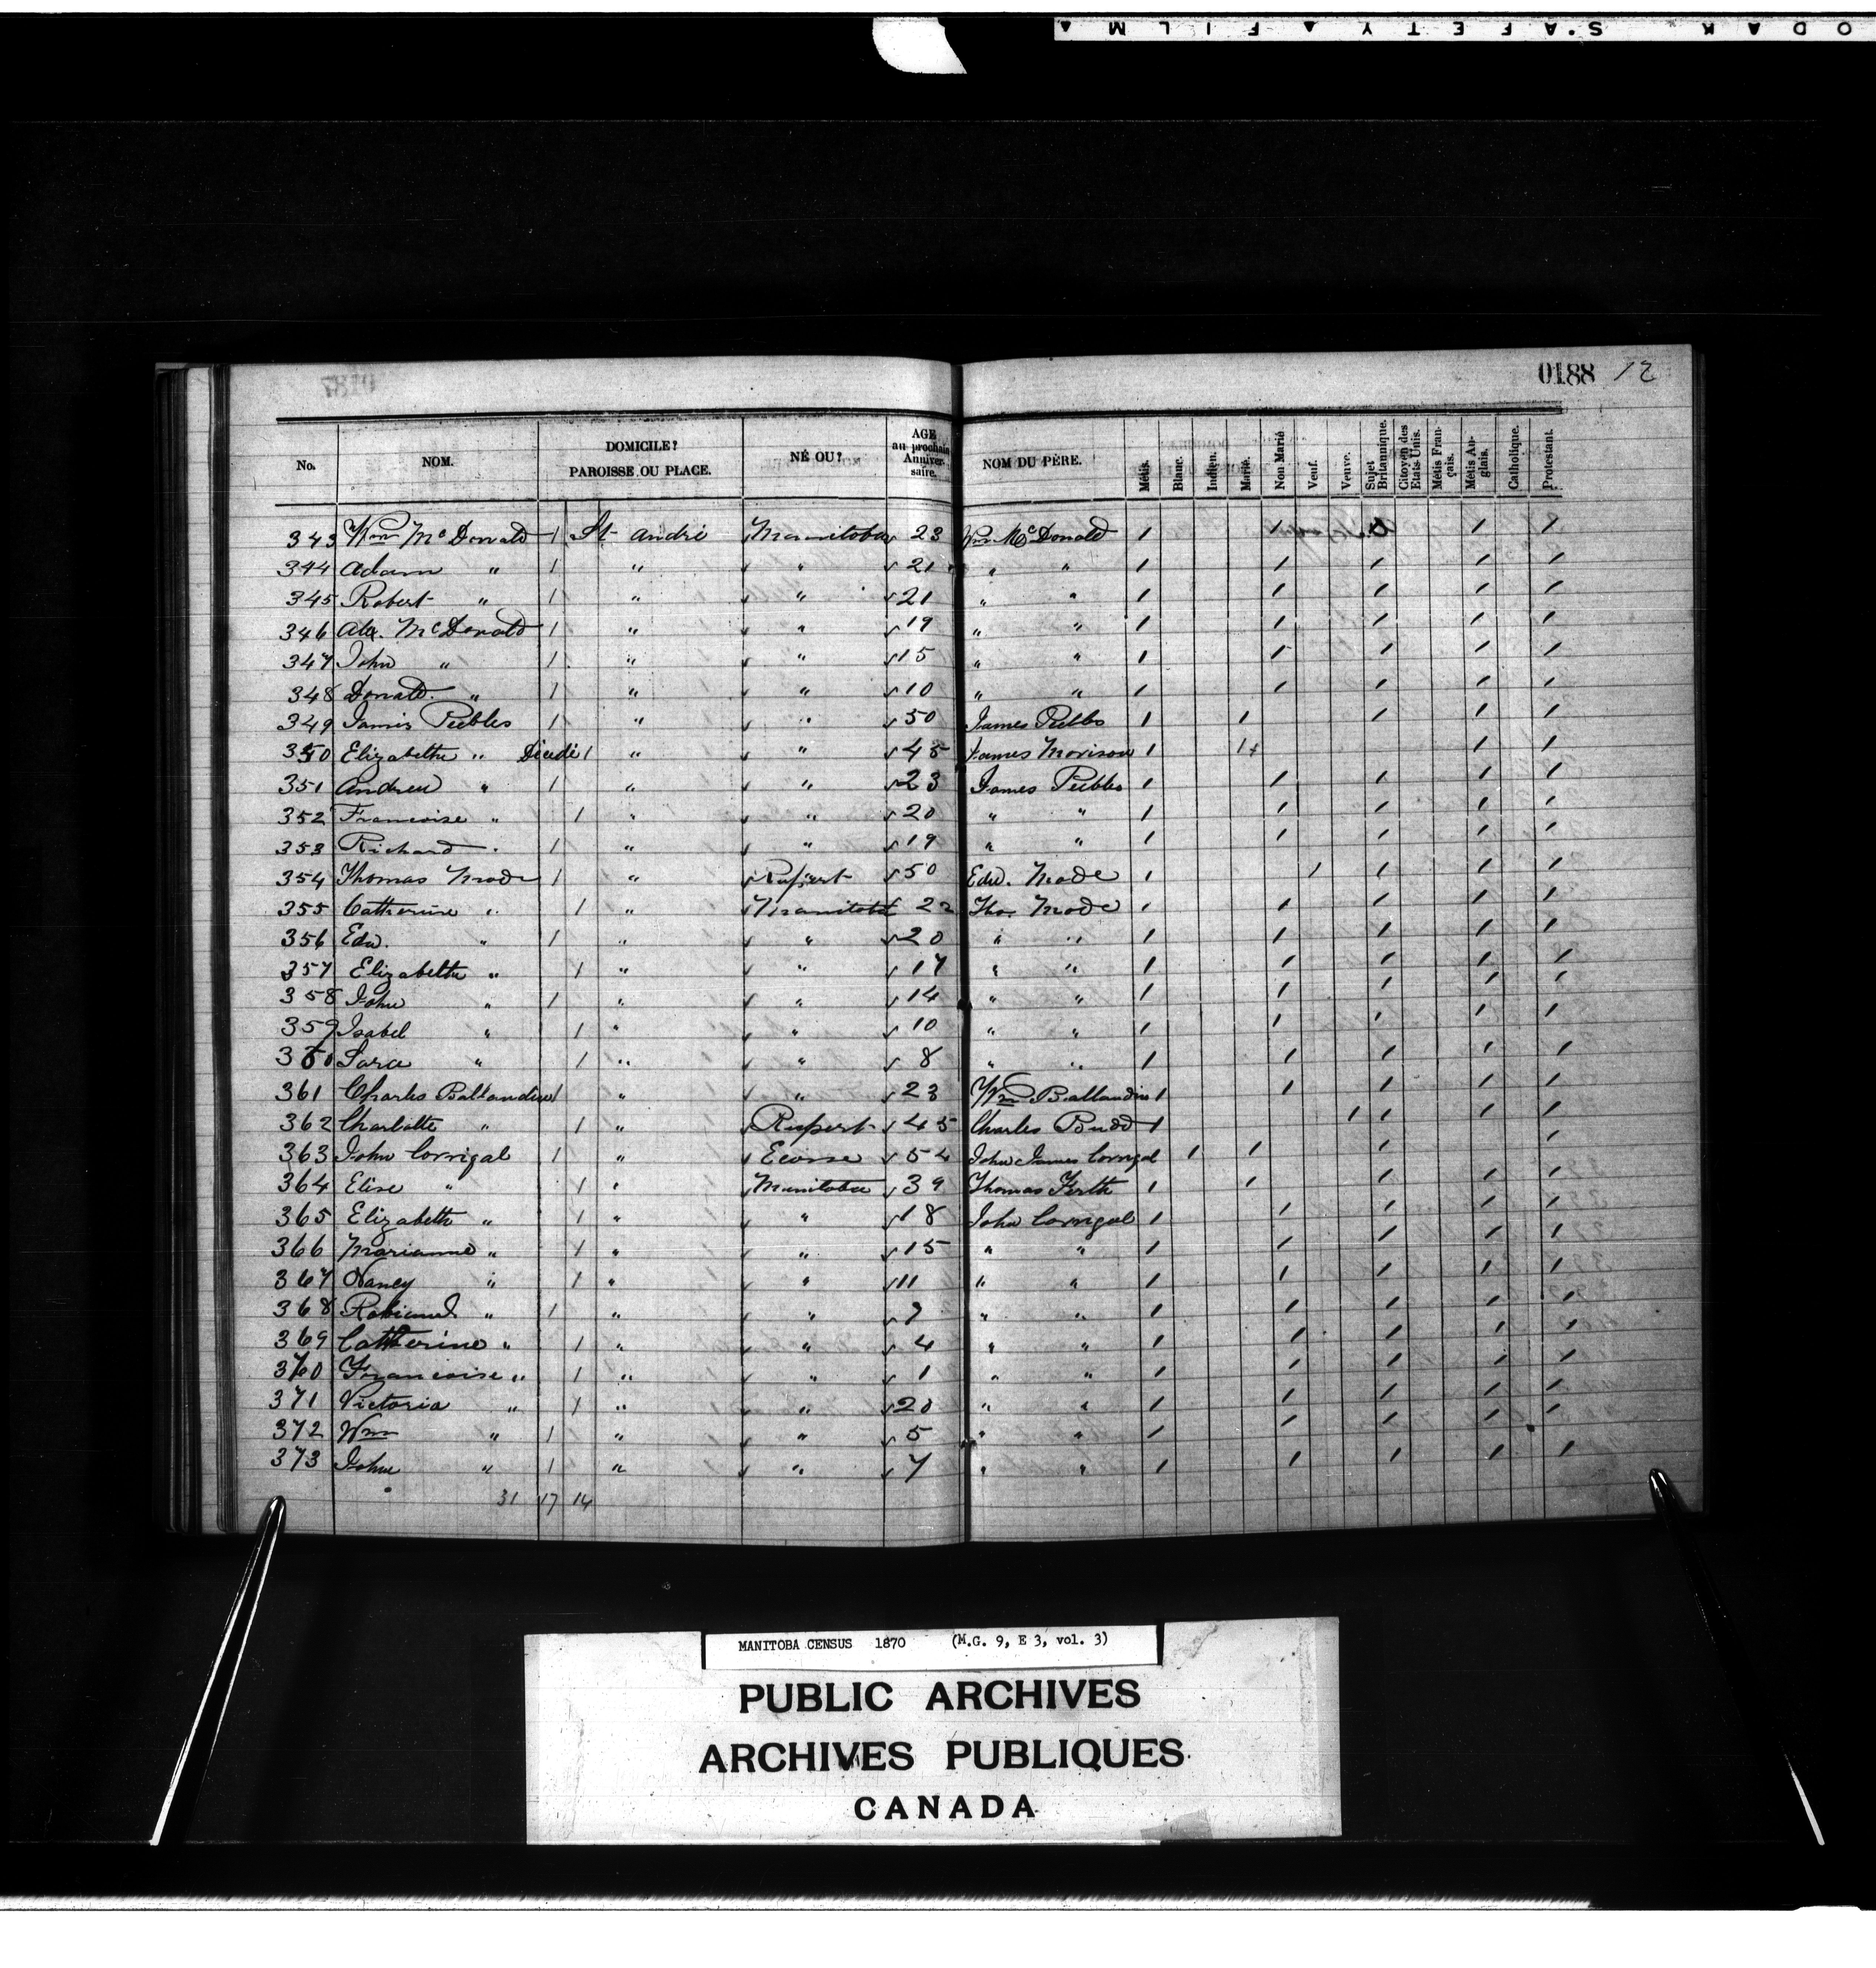 ODAK SAFETY ▲ FILM ▲
0187
0188 12
No. NOM. DOMICILE? PAROISSE OU PLACE. NÉ OU? AGE au prochain Anniversaire. NOM DU PÈRE. Métis. Blanc. Indien. Marié. Non Marié Veuf. Veuve. Sujet Britannique. Citoyen des Etats Unis. Métis Français. Métis Anglais. Catholique. Protestant.
343 Wm McDonald 1 St André Manitoba 23 Wm McDonald 1 1 1 1
344 Adam " 1 " " 21 " " 1 1 1 1 1
345 Robert " 1 " " 21 " " 1 1 1 1 1
346 Alex. McDonald 1 " " 19 " " 1 1 1 1 1
347 John " 1 " " 15 " " 1 1 1 1 1
348 Donald " 1 " " 10 " " 1 1 1 1 1
349 James Peebles 1 " " 50 James Peebles 1 1 1 1 1
350 Elizabeth " Décédé 1 " " 45 James Morison 1 1 1 1
351 Andrew " 1 " " 23 James Peebles 1 1 1 1 1
352 Francoise " 1 " " 20 " " 1 1 1 1 1
353 Richard " 1 " " 19 " " 1 1 1 1 1
354 Thomas Mode 1 " Rupert 50 Edw. Mode 1 1 1 1 1
355 Catherine " 1 " Manitoba 22 Tho. Mode 1 1 1 1 1
356 Edw. " 1 " " 20 " " 1 1 1 1 1
357 Elizabeth " 1 " " 17 " " 1 1 1 1 1
358 John " 1 " " 14 " " 1 1 1 1 1
359 Isabel " 1 " " 10 " " 1 1 1 1 1
360 Sara " 1 " " 8 " " 1 1 1 1 1
361 Charles Ballandine 1 " " 23 Wm Ballandine 1 1 1 1 1
362 Charlotte " 1 " Rupert 45 Charles Budd 1 1 1 1 1
363 John Corrigal 1 " Ecosse 54 John James Corrigal 1 1 1 1
364 Elise " 1 " Manitoba 39 Thomas Firth 1 1 1 1 1
365 Elizabeth " 1 " " 18 John Corrigal 1 1 1 1 1
366 Marianne " 1 " " 15 " " 1 1 1 1 1
367 Nancy " 1 " " 11 " " 1 1 1 1 1
368 " 1 " " " " 1 1 1 1 1
369 Catherine " 1 " " 4 " " 1 1 1 1 1
370 Francoise " 1 " " 1 " " 1 1 1 1 1
371 Victoria " 1 " " 20 " " 1 1 1 1 1
372 Wm " 1 " " 5 " " 1 1 1 1 1
373 John " 1 " " 7 " " 1 1 1 1 1
31 17 14
MANITOBA CENSUS 1870 (M.G. 9, E 3, vol. 3)
PUBLIC ARCHIVES
ARCHIVES PUBLIQUES
CANADA